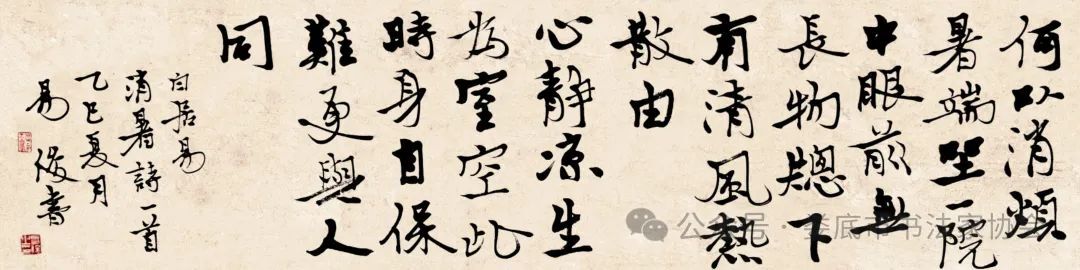 何以消煩
暑端坐一院
中眼前無
長物牕下
有清風熱
散由
心靜涼生
為室空此
時身自保
難更與人
同
白居易
消暑詩一首
乙巳夏月
易俊書
公众号 · 娄底市书法家协会